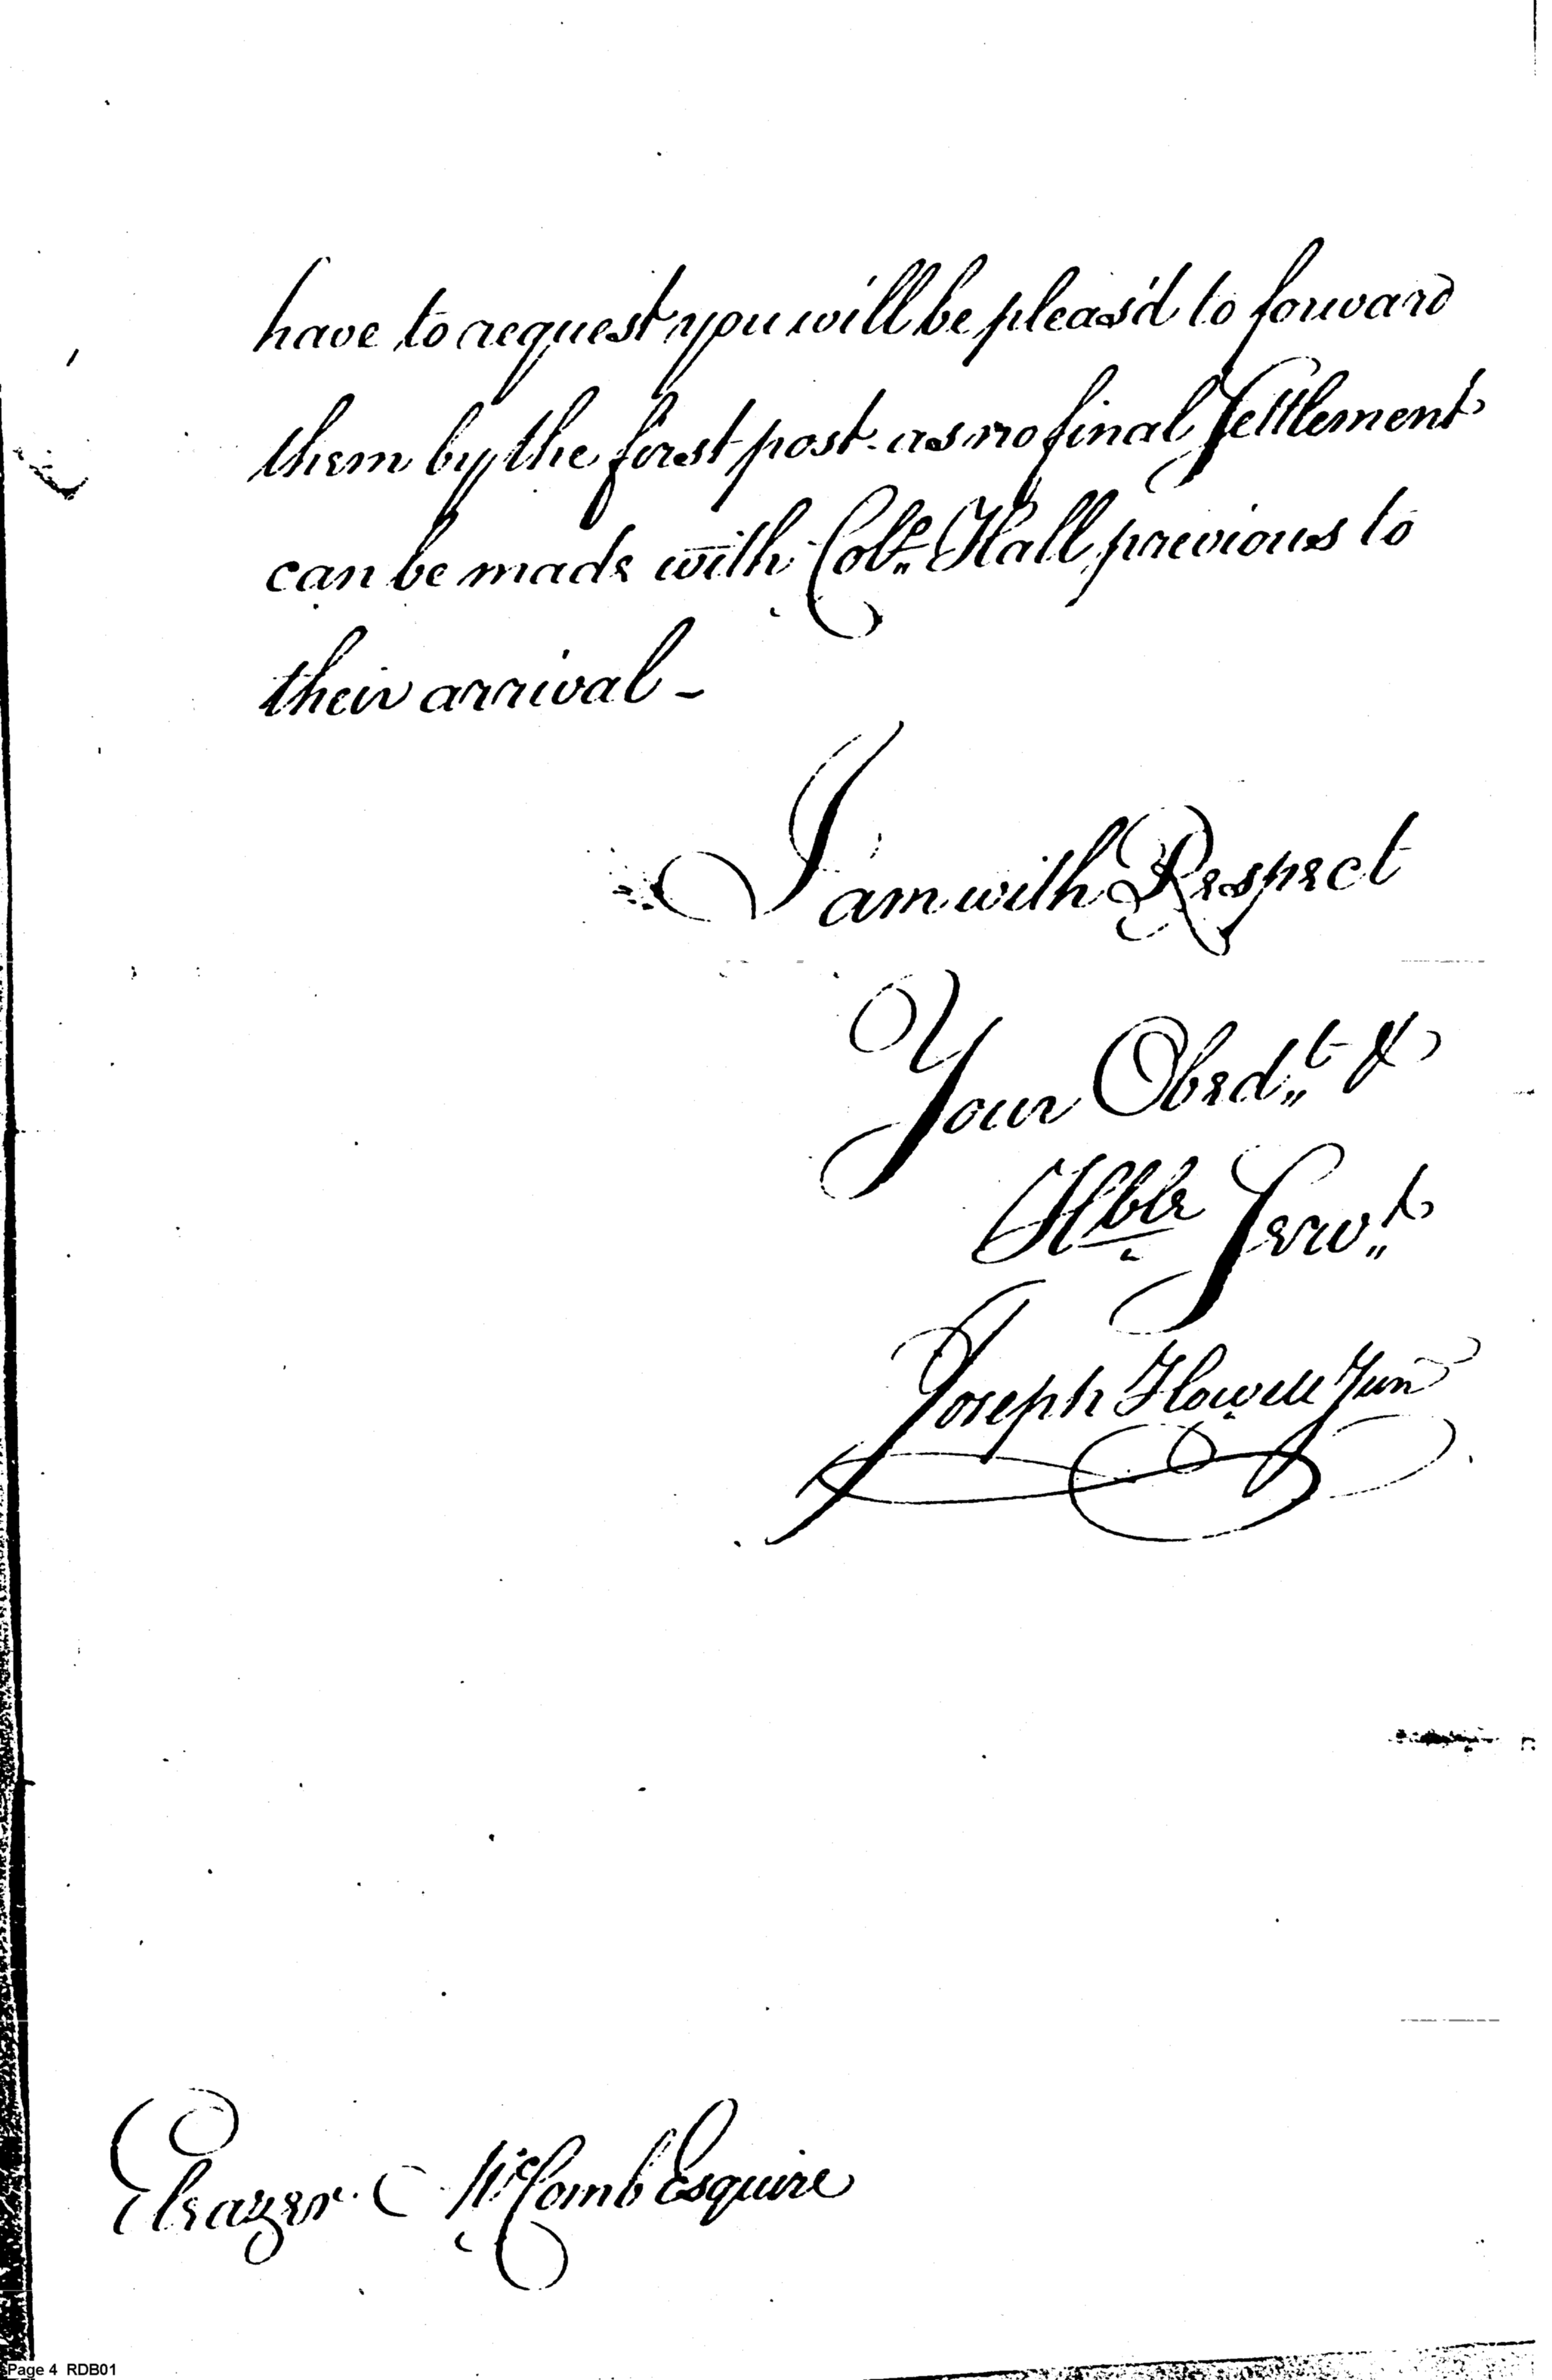 have to request you will be pleas'd to forward
them by the first post as no final Settlement
can be made with Colo. Hall previous to
their arrival -
I am with Respect
Your Obedt &
Hble Servt
Joseph Howell Junr
Eleazer McComb Esquire
Page 4 RDB01